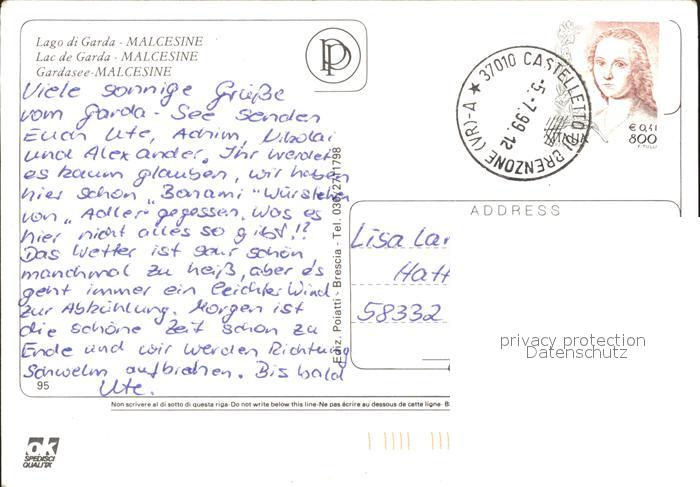 Lago di Garda - MALCESINE
Lac de Garda - MALCESINE
Gardasee-MALCESINE
Viele sonnige Grüße
vom Garda-See senden
Euch Ute, Achim, Nikolai
und Alexander. Ihr werdet
es kaum glauben, wir haben
hier schon "Bonami" Würstchen
von "Adler" gegessen. Was es
hier nicht alles so gibt!!
Das Wetter ist sehr schön
manchmal zu heiß, aber es
geht immer ein leichter Wind
zur Abkühlung. Morgen ist
die schöne Zeit schon zu
Ende und wir werden Richtung
Schwelm aufbrechen. Bis bald
Ute.
95
Ediz. Poiatti - Brescia - Tel. 030/2711798
37010 CASTELLETTO DI BRENZONE (VR)-A
-5.-7.99.12
ITALIA
€ 0,41
800
ADDRESS
Lisa
Hatt
58332
privacy protection
Datenschutz
Non scrivere al di sotto di questa riga-Do not write below this line-Ne pas écrire au dessous de cette ligne- B
ok
SPEDISCI
QUALITA'